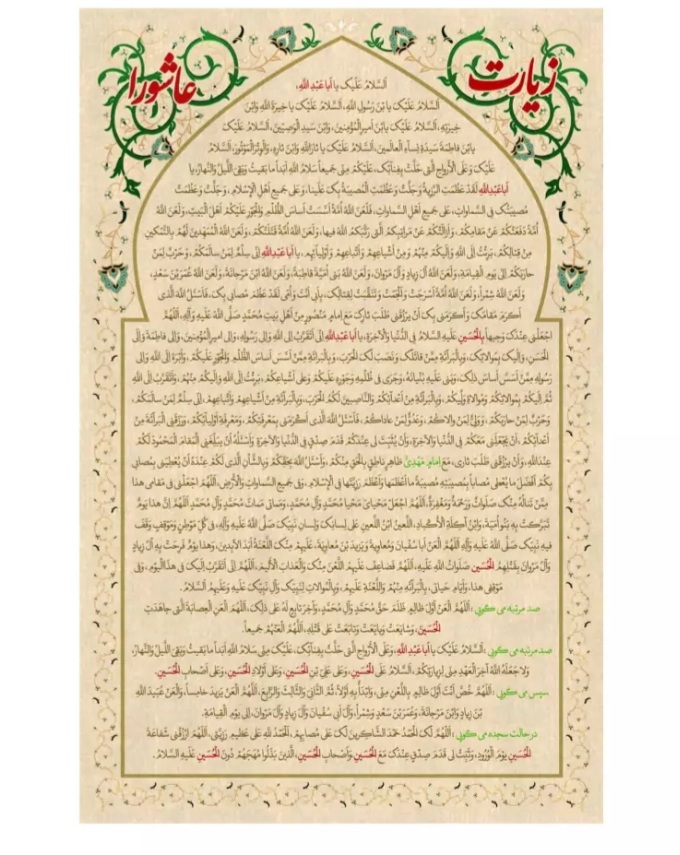 زیارت
عاشورا
اَلسَّلامُ عَلَیْکَ یا اَباعَبْدِاللهِ،
اَلسَّلامُ عَلَیْکَ یَابْنَ رَسُولِ اللهِ، اَلسَّلامُ عَلَیْکَ یا خِیَرَةَ اللهِ وَابْنَ
خِیَرَتِهِ، اَلسَّلامُ عَلَیْکَ یَابْنَ اَمیرِالْمُؤْمِنینَ، وَابْنَ سَیِّدِ الْوَصِیّینَ، اَلسَّلامُ عَلَیْکَ
یَابْنَ فاطِمَةَ سَیِّدَةِ نِساءِ الْعالَمینَ، اَلسَّلامُ عَلَیْکَ یا ثارَاللهِ وَابْنَ ثارِهِ، وَالْوِتْرَ الْمَوْتُورَ، اَلسَّلامُ
عَلَیْکَ وَعَلَی الْاَرْواحِ الَّتی حَلَّتْ بِفِنائِکَ، عَلَیْکُمْ مِنّی جَمیعاً سَلامُ اللهِ اَبَداً ما بَقیتُ وَبَقِیَ اللَّیْلُ وَالنَّهارُ، یا
اَباعَبْدِاللهِ لَقَدْ عَظُمَتِ الرَّزِیَّةُ وَجَلَّتْ وَعَظُمَتِ الْمُصیبَةُ بِکَ عَلَیْنا، وَعَلی جَمیعِ اَهْلِ الْاِسْلامِ، وَجَلَّتْ وَعَظُمَتْ
مُصیبَتُکَ فِی السَّماواتِ، عَلی جَمیعِ اَهْلِ السَّماواتِ، فَلَعَنَ اللهُ اُمَّةً اَسَّسَتْ اَساسَ الظُّلْمِ وَالْجَوْرِ عَلَیْکُمْ اَهْلَ الْبَیْتِ، وَلَعَنَ اللهُ
اُمَّةً دَفَعَتْکُمْ عَنْ مَقامِکُمْ، وَاَزالَتْکُمْ عَنْ مَراتِبِکُمُ الَّتی رَتَّبَکُمُ اللهُ فیها، وَلَعَنَ اللهُ اُمَّةً قَتَلَتْکُمْ، وَلَعَنَ اللهُ الْمُمَهِّدینَ لَهُمْ بِالتَّمْکینِ
مِنْ قِتالِکُمْ، بَرِئْتُ اِلَی اللهِ وَاِلَیْکُمْ مِنْهُمْ وَمِنْ اَشْیاعِهِمْ وَاَتْباعِهِمْ وَاَوْلِیآئِهِمْ، یا اَباعَبْدِاللهِ اِنّی سِلْمٌ لِمَنْ سالَمَکُمْ، وَحَرْبٌ لِمَنْ
حارَبَکُمْ اِلی یَوْمِ الْقِیامَةِ، وَلَعَنَ اللهُ آلَ زِیادٍ وَآلَ مَرْوانَ، وَلَعَنَ اللهُ بَنی اُمَیَّةَ قاطِبَةً، وَلَعَنَ اللهُ ابْنَ مَرْجانَةَ، وَلَعَنَ اللهُ عُمَرَ بْنَ سَعْدٍ،
وَلَعَنَ اللهُ شِمْراً، وَلَعَنَ اللهُ اُمَّةً اَسْرَجَتْ وَاَلْجَمَتْ وَتَنَقَّبَتْ لِقِتالِکَ، بِاَبی اَنْتَ وَاُمّی لَقَدْ عَظُمَ مُصابی بِکَ، فَاَسْئَلُ اللهَ الَّذی
اَکْرَمَ مَقامَکَ وَاَکْرَمَنی بِکَ اَنْ یَرْزُقَنی طَلَبَ ثارِکَ مَعَ اِمامٍ مَنْصُورٍ مِنْ اَهْلِ بَیْتِ مُحَمَّدٍ صَلَّی اللهُ عَلَیْهِ وَآلِهِ، اَللّهُمَّ
اجْعَلْنی عِنْدَکَ وَجیهاً بِالْحُسَیْنِ عَلَیْهِ السَّلامُ فِی الدُّنْیا وَالْاخِرَةِ، یا اَباعَبْدِاللهِ اِنّی اَتَقَرَّبُ اِلَی اللهِ وَاِلی رَسُولِهِ، وَاِلی امیرِالْمُؤْمِنینَ، وَاِلی فاطِمَةَ وَاِلَی
الْحَسَنِ، وَاِلَیْکَ بِمُوالاتِکَ، وَبِالْبَرائَةِ مِمَّنْ قاتَلَکَ وَنَصَبَ لَکَ الْحَرْبَ، وَبِالْبَرائَةِ مِمَّنْ اَسَّسَ اَساسَ الظُّلْمِ وَالْجَوْرِ عَلَیْکُمْ، وَاَبْرَءُ اِلَی اللهِ وَاِلی
رَسُولِهِ مِمَّنْ اَسَّسَ اَساسَ ذلِکَ، وَبَنی عَلَیْهِ بُنْیانَهُ، وَجَری فی ظُلْمِهِ وَجَوْرِهِ عَلَیْکُمْ وَعلی اَشْیاعِکُمْ، بَرِئْتُ اِلَی اللهِ وَاِلَیْکُمْ مِنْهُمْ، وَاَتَقَرَّبُ اِلَی اللهِ
ثُمَّ اِلَیْکُمْ بِمُوالاتِکُمْ وَمُوالاةِ وَلِیِّکُمْ، وَبِالْبَرائَةِ مِنْ اَعْدائِکُمْ، وَالنّاصِبینَ لَکُمُ الْحَرْبَ، وَبِالْبَرائَةِ مِنْ اَشْیاعِهِمْ وَاَتْباعِهِمْ، اِنّی سِلْمٌ لِمَنْ سالَمَکُمْ،
وَحَرْبٌ لِمَنْ حارَبَکُمْ، وَوَلِیٌّ لِمَنْ والاکُمْ، وَعَدُوٌّ لِمَنْ عاداکُمْ، فَاَسْئَلُ اللهَ الَّذی اَکْرَمَنی بِمَعْرِفَتِکُمْ، وَمَعْرِفَةِ اَوْلِیآئِکُمْ، وَرَزَقَنِی الْبَرائَةَ مِنْ
اَعْدائِکُمْ، اَنْ یَجْعَلَنی مَعَکُمْ فِی الدُّنْیا وَالْاخِرَةِ، وَاَنْ یُثَبِّتَ لی عِنْدَکُمْ قَدَمَ صِدْقٍ فِی الدُّنْیا وَالْاخِرَةِ، وَاَسْئَلُهُ اَنْ یُبَلِّغَنِی الْمَقامَ الْمَحْمُودَ لَکُمْ
عِنْدَاللهِ، وَاَنْ یَرْزُقَنی طَلَبَ ثاری، مَعَ اِمامٍ مَهْدِیٍّ ظاهِرٍ ناطِقٍ بِالْحَقِّ مِنْکُمْ، وَاَسْئَلُ اللهَ بِحَقِّکُمْ وَبِالشَّاْنِ الَّذی لَکُمْ عِنْدَهُ اَنْ یُعْطِیَنی بِمُصابی
بِکُمْ اَفْضَلَ ما یُعْطی مُصاباً بِمُصیبَتِهِ مُصیبَةً ما اَعْظَمَها وَاَعْظَمَ رَزِیَّتَها فِی الْاِسْلامِ، وَفی جَمیعِ السَّماواتِ وَالْاَرْضِ، اَللّهُمَّ اجْعَلْنی فی مَقامی هذا
مِمَّنْ تَنالُهُ مِنْکَ صَلَواتٌ وَرَحْمَةٌ وَمَغْفِرَةٌ، اَللّهُمَّ اجْعَلْ مَحْیایَ مَحْیا مُحَمَّدٍ وَآلِ مُحَمَّدٍ، وَمَماتی مَماتَ مُحَمَّدٍ وَآلِ مُحَمَّدٍ اَللّهُمَّ اِنَّ هذا یَوْمٌ
تَبَرَّکَتْ بِهِ بَنُواُمَیَّةَ، وَابْنُ آکِلَةِ الْاَکْبادِ، اللَّعینُ ابْنُ اللَّعینِ عَلی لِسانِکَ وَلِسانِ نَبِیِّکَ صَلَّی اللهُ عَلَیْهِ وَآلِهِ، فی کُلِّ مَوْطِنٍ وَمَوْقِفٍ وَقَفَ
فیهِ نَبِیُّکَ صَلَّی اللهُ عَلَیْهِ وَآلِهِ اَللّهُمَّ الْعَنْ اَباسُفْیانَ وَمُعاوِیَةَ وَیَزیدَ بْنَ مُعاوِیَةَ، عَلَیْهِمْ مِنْکَ اللَّعْنَةُ اَبَدَ الْابِدینَ، وَهذا یَوْمٌ فَرِحَتْ بِهِ آلُ زِیادٍ
وَآلُ مَرْوانَ بِقَتْلِهِمُ الْحُسَیْنَ صَلَواتُ اللهِ عَلَیْهِ، اَللّهُمَّ فَضاعِفْ عَلَیْهِمُ اللَّعْنَ مِنْکَ وَالْعَذابَ الْاَلیمَ، اَللّهُمَّ اِنّی اَتَقَرَّبُ اِلَیْکَ فی هذَا الْیَوْمِ، وَفی
مَوْقِفی هذا، وَاَیّامِ حَیاتی، بِالْبَرائَةِ مِنْهُمْ وَاللَّعْنَةِ عَلَیْهِمْ، وَبِالْمُوالاتِ لِنَبِیِّکَ وَآلِ نَبِیِّکَ عَلَیْهِ وَعَلَیْهِمُ اَلسَّلامُ.
صد مرتبه می گوئی : اَللّهُمَّ الْعَنْ اَوَّلَ ظالِمٍ ظَلَمَ حَقَّ مُحَمَّدٍ وَآلِ مُحَمَّدٍ، وَآخِرَ تابِعٍ لَهُ عَلی ذلِکَ، اَللّهُمَّ الْعَنِ الْعِصابَةَ الَّتی جاهَدَتِ
الْحُسَیْنَ، وَشایَعَتْ وَبایَعَتْ وَتابَعَتْ عَلی قَتْلِهِ، اَللّهُمَّ الْعَنْهُمْ جَمیعاً.
صد مرتبه می گوئی : اَلسَّلامُ عَلَیْکَ یا اَباعَبْدِاللهِ، وَعَلَی الْاَرْواحِ الَّتی حَلَّتْ بِفِنائِکَ، عَلَیْکَ مِنّی سَلامُ اللهِ اَبَداً ما بَقیتُ وَبَقِیَ اللَّیْلُ وَالنَّهارُ،
وَلا جَعَلَهُ اللهُ آخِرَ الْعَهْدِ مِنّی لِزِیارَتِکُمْ، اَلسَّلامُ عَلَی الْحُسَیْنِ، وَعَلی عَلِیِّ بْنِ الْحُسَیْنِ، وَعَلی اَوْلادِ الْحُسَیْنِ، وَعَلی اَصْحابِ الْحُسَیْنِ.
سپس می گوئی : اَللّهُمَّ خُصَّ اَنْتَ اَوَّلَ ظالِمٍ بِاللَّعْنِ مِنّی، وَابْدَاْ بِهِ اَوَّلاً، ثُمَّ الثّانِیَ وَالثّالِثَ وَالرّابِعَ، اَللّهُمَّ الْعَنْ یَزیدَ خامِساً، وَالْعَنْ عُبَیْدَ اللهِ
بْنَ زِیادٍ وَابْنَ مَرْجانَةَ، وَعُمَرَ بْنَ سَعْدٍ وَشِمْراً، وَآلَ اَبی سُفْیانَ وَآلَ زِیادٍ وَآلَ مَرْوانَ، اِلی یَوْمِ الْقِیامَةِ.
در حالت سجده می گوئی : اَللّهُمَّ لَکَ الْحَمْدُ حَمْدَ الشّاکِرینَ لَکَ عَلی مُصابِهِمْ، اَلْحَمْدُ لِلّهِ عَلی عَظیمِ رَزِیَّتی، اَللّهُمَّ ارْزُقْنی شَفاعَةَ
الْحُسَیْنِ یَوْمَ الْوُرُودِ، وَثَبِّتْ لی قَدَمَ صِدْقٍ عِنْدَکَ مَعَ الْحُسَیْنِ وَاَصْحابِ الْحُسَیْنِ، الَّذینَ بَذَلُوا مُهَجَهُمْ دُونَ الْحُسَیْنِ عَلَیْهِ السَّلامُ.